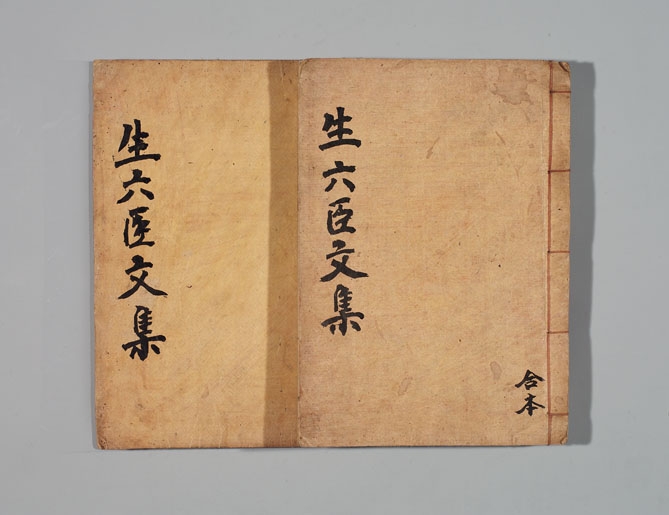 生六臣文集
合本
生六臣文集